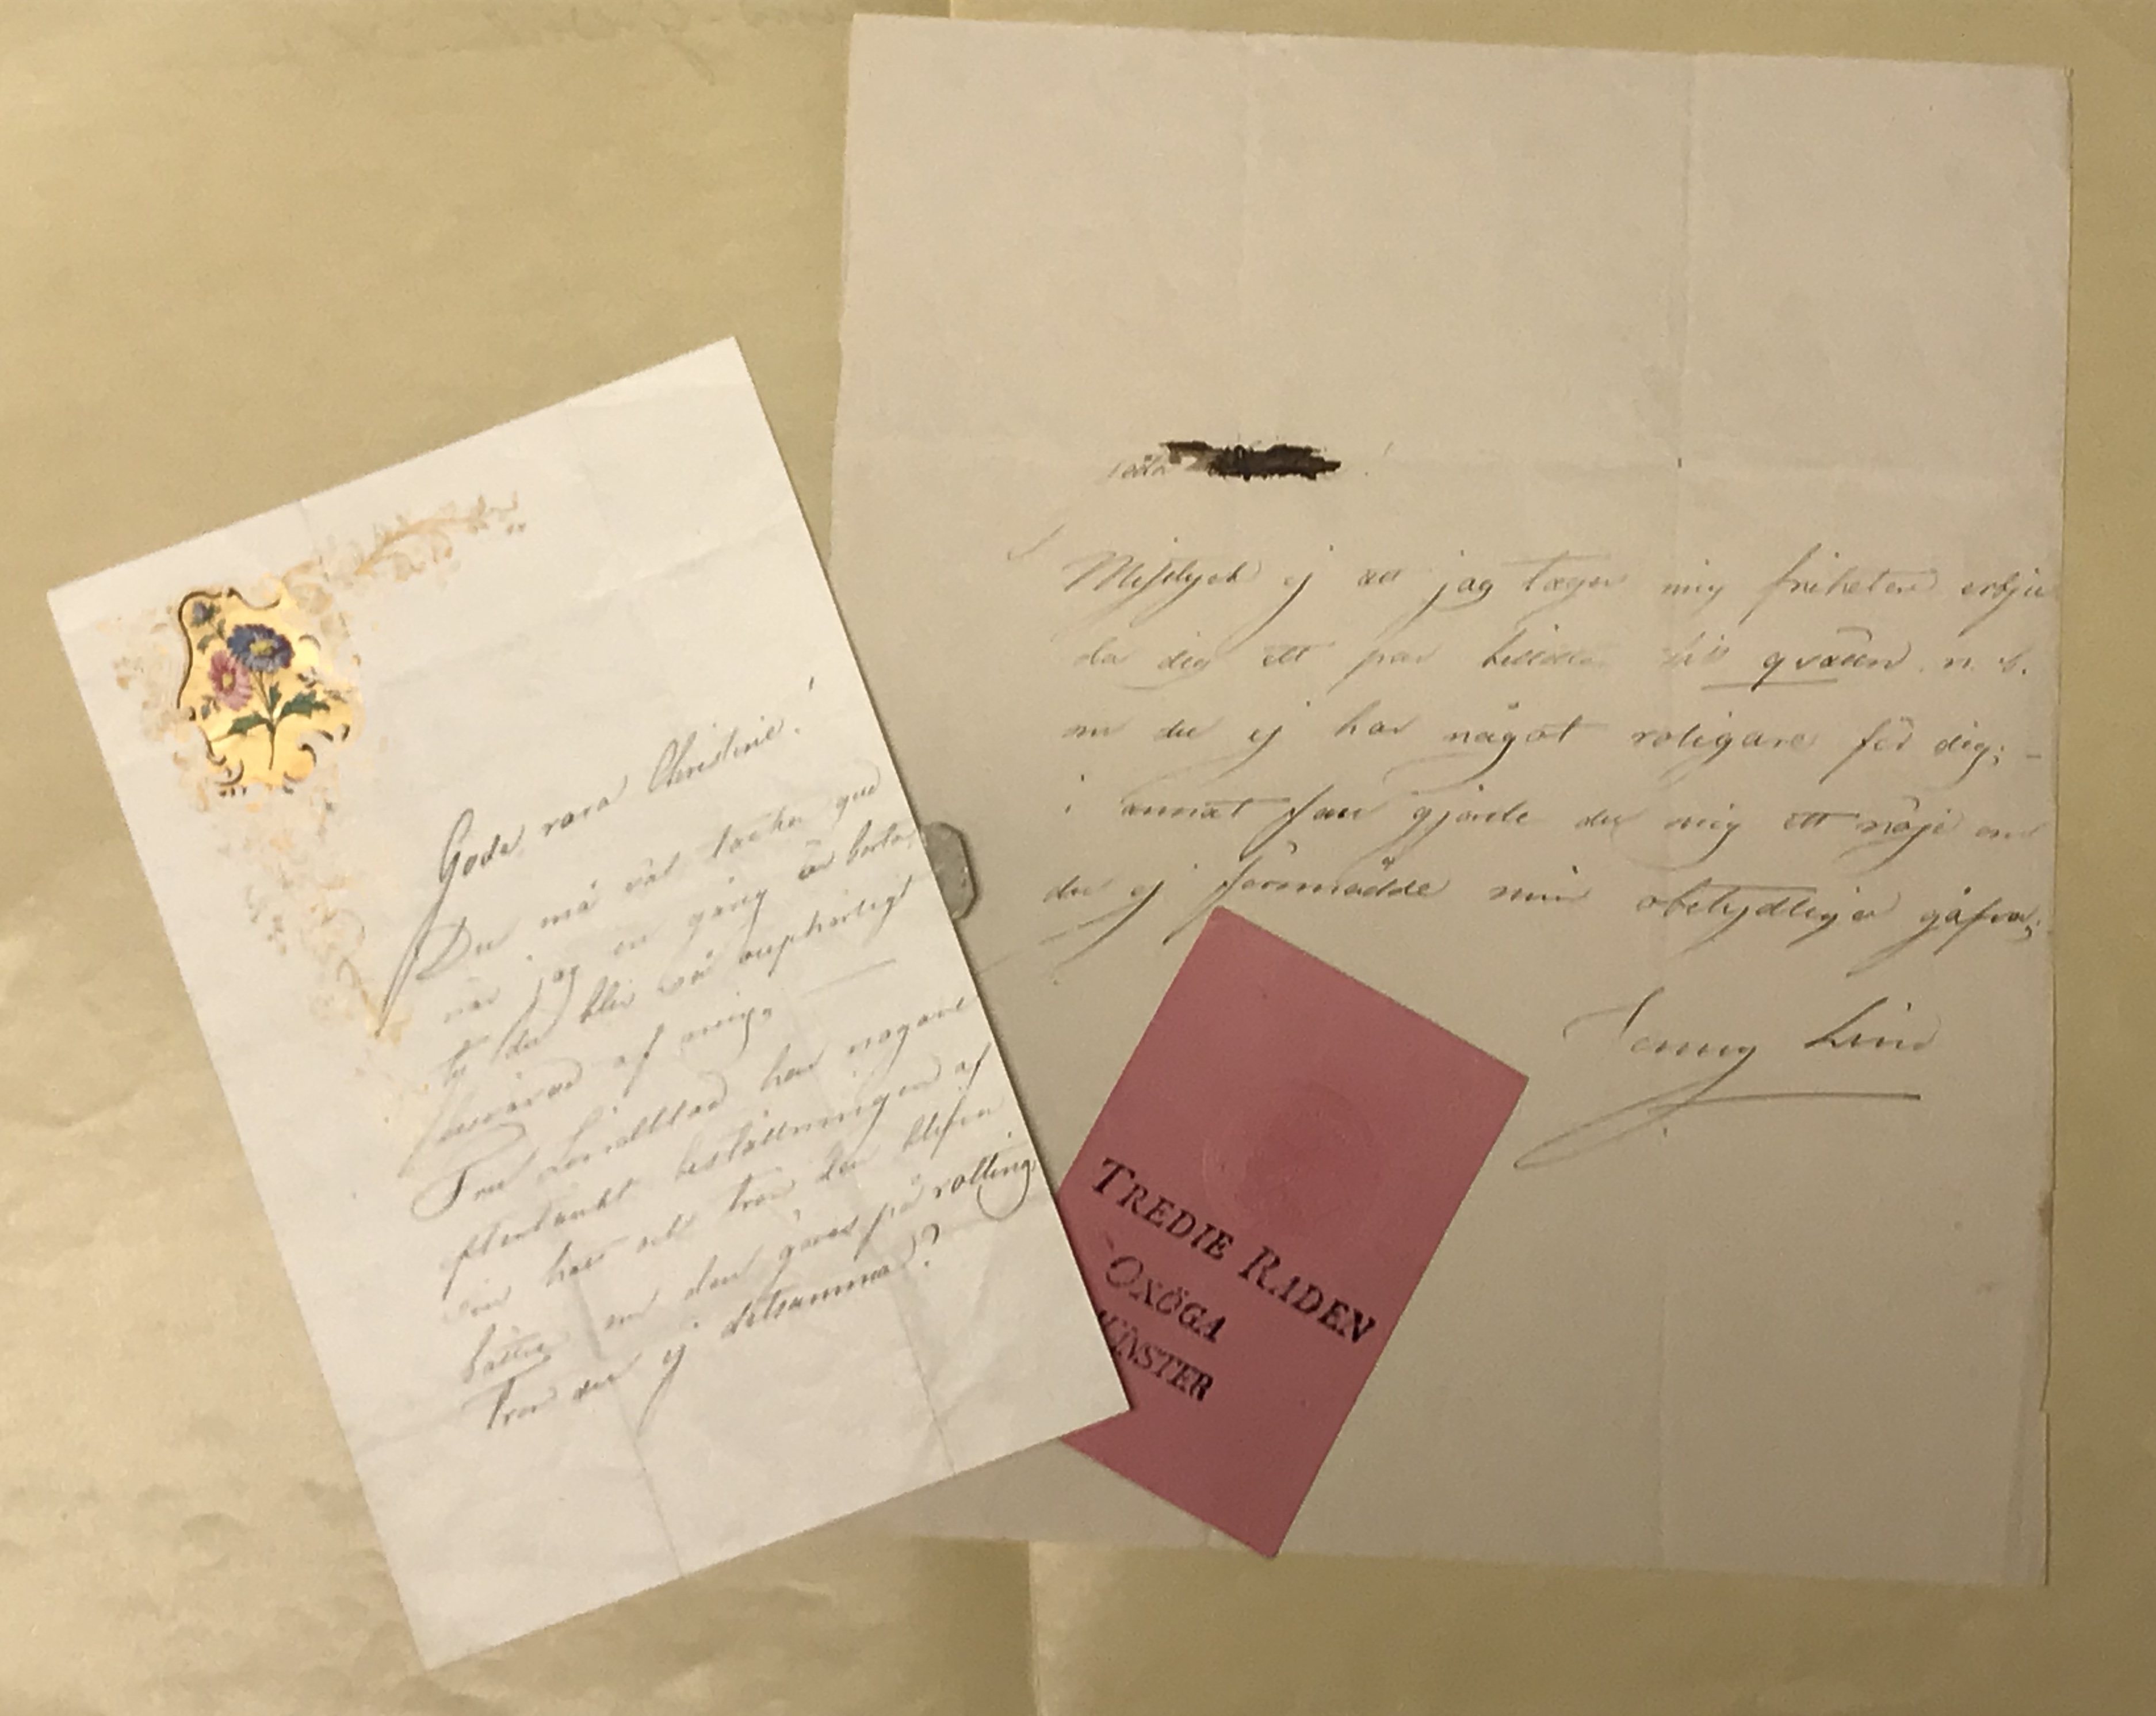 Goda, rara Christine!
Du må väl tacka gud
när jag en gång är borta,
ty du blir så oupphörligt
besvärad af mig.
Fru Lindblad har nogare
eftertänkt beställningen af
sin hatt och tror den blifva
bättre om den göres på rotting.
Tror du ej detsamma?
Misstyck ej att jag tager mig friheten erbju
da dig ett par billetter till qvällen. n. b.
om du ej har något roligare för dig; –
i annat fall gjorde du mig ett nöje om
du ej försmådde min obetydliga gåfva;
Jenny Lind
TREDIE RADEN
OXÖGA
VÄNSTER